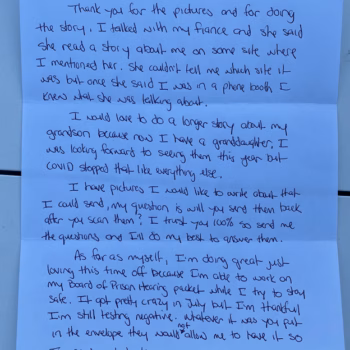 Thank you for the pictures and for doing
the story. I talked with my fiance and she said
she read a story about me on some site where
I mentioned her. She couldn't tell me which site it
was but once she said I was in a phone booth I
knew what she was talking about.
I would love to do a longer story about my
grandson because now I have a granddaughter, I
was looking forward to seeing them this year but
COVID stopped that like everything else.
I have pictures I would like to write about that
I could send, my question is will you send them back
after you scan them? I trust you 100% so send me
the questions and I'll do my best to answer them.
As far as myself, I'm doing great just
loving this time off because I'm able to work on
my Board of Prison Hearing packet while I try to stay
safe. It got pretty crazy in July but I'm thankful
I'm still testing negative. Whatever it was you put
in the envelope they would not allow me to have it so